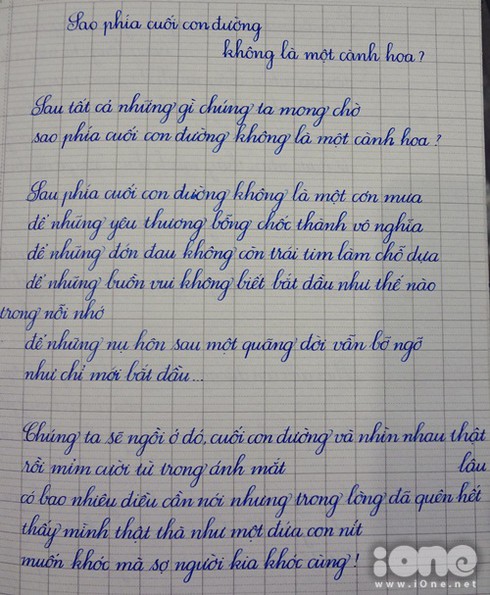 Sao phía cuối con đường
không là một cành hoa ?
Sau tất cả những gì chúng ta mong chờ
sao phía cuối con đường không là một cành hoa ?
Sau phía cuối con đường không là một cơn mưa
để những yêu thương bỗng chốc thành vô nghĩa
để những đớn đau không còn trái tim làm chỗ dựa
để những buồn vui không biết bắt đầu như thế nào
trong nỗi nhớ
để những nụ hôn sau một quãng đời vẫn bỡ ngỡ
như chỉ mới bắt đầu ...
Chúng ta sẽ ngồi ở đó, cuối con đường và nhìn nhau thật
lâu
rồi mỉm cười từ trong ánh mắt
có bao nhiêu điều cần nói nhưng trong lòng đã quên hết
thấy mình thật thà như một đứa con nít
muốn khóc mà sợ người kia khóc cùng !
iOne
www.iOne.net